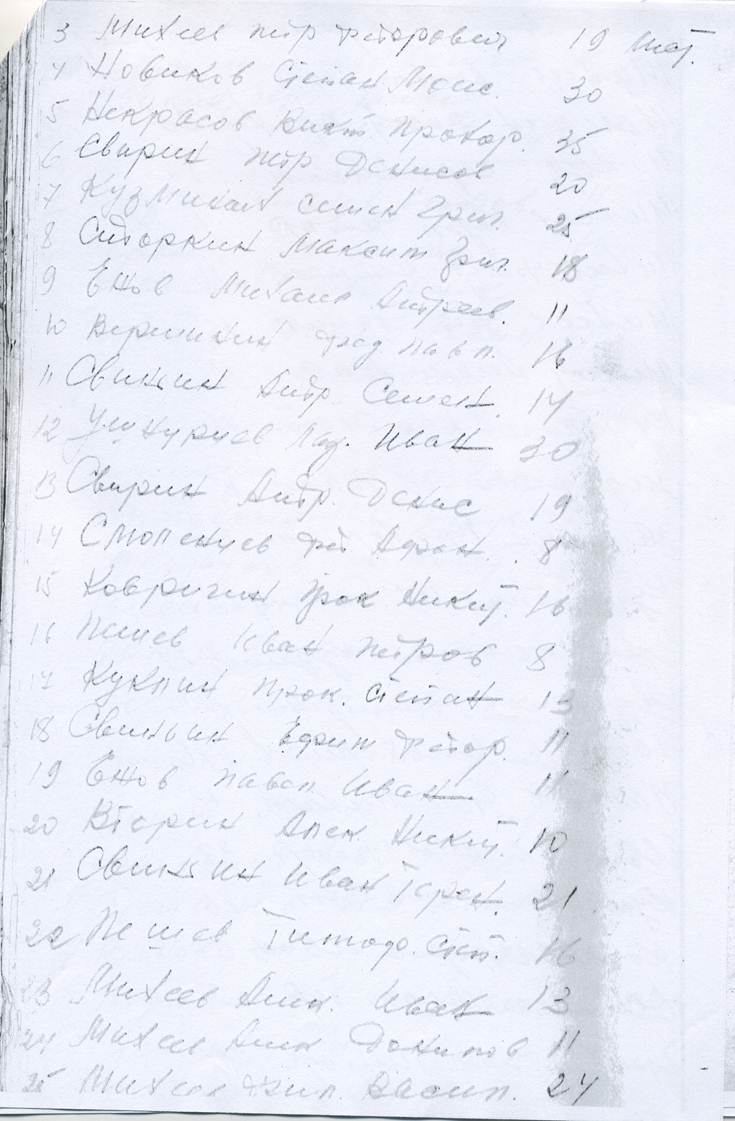 3 Михеев Петр Федорович 19 шт.
4 Новиков Степан Моис. 30
5 Некрасов Викт. Прохор. 35
6 Свирин Петр Денисов 20
7 Кузминых Семен Григ. 25
8 Сторкин Максим Григ. 18
9 Ежов Михаил Андреев. 11
10 Павл. 16
11 Свиньин Андр. Семен. 14
12 Иван 30
13 Свирин Андр. Денис 19
14 Смоленцев Афан. 8
15 Ковригин Никит. 16
16 Пешев Иван Петров 8
17 Куклин Прок. Степан 13
18 Свиньин Ефим Федор. 11
19 Ежов Павел Иван 11
20 Вторин Алек. Никит. 10
21 Свиньин Иван 21
22 Пешев Тимоф. Степ. 16
23 Михеев Иван 13
24 Михеев Данилов 11
25 Михеев Фил. Васил. 24